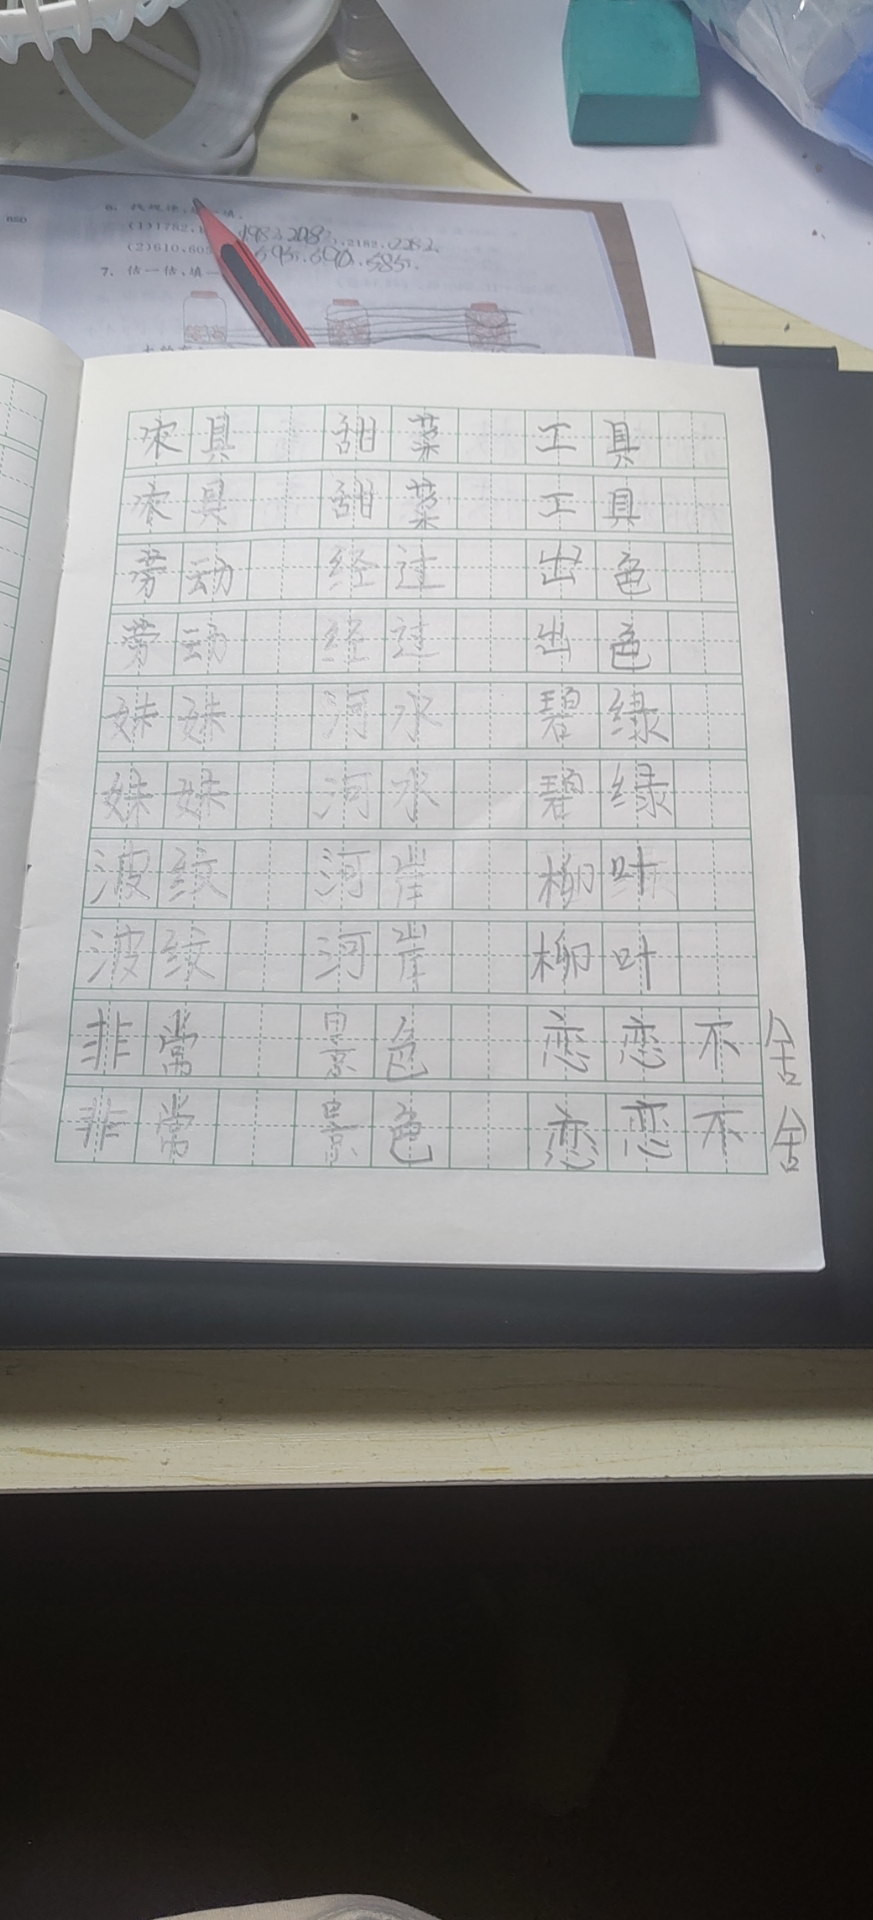 (1)1782,1 1983,2083,2182,2282.
(2)610,605 595,590,585.
7. 估一估,填一
农具 甜菜 工具
农具 甜菜 工具
劳动 经过 出色
劳动 经过 出色
妹妹 河水 碧绿
妹妹 河水 碧绿
波纹 河岸 柳叶
波纹 河岸 柳叶
非常 景色 恋恋不舍
非常 景色 恋恋不舍